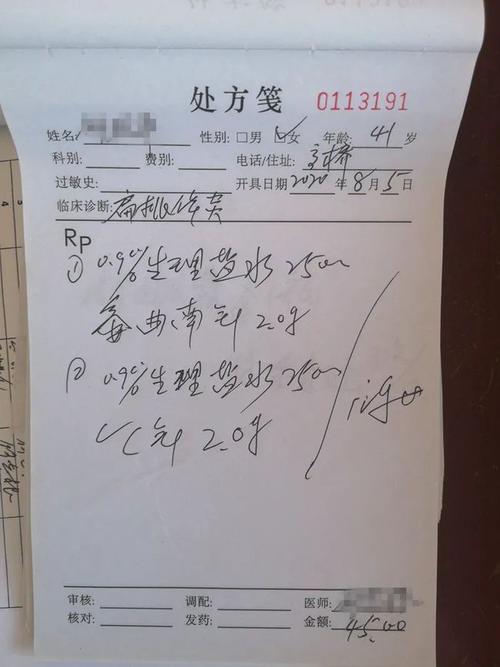 处方笺 0113191
姓名: 性别: □男 ☑女 年龄: 41 岁
科别: 费别: 电话/住址:
过敏史: 开具日期 2020 年 8 月 5 日
临床诊断: 扁桃体炎
Rp
① 0.9%生理盐水 250
曲南针 2.0g
② 0.9%生理盐水 250
VC针 2.0g
审核: 调配: 医师:
核对: 发药: 金额: 45.00